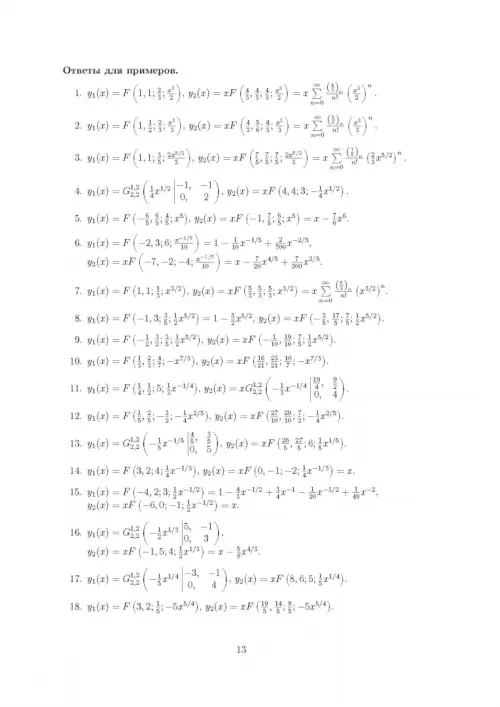 Ответы для примеров.
1. y₁(x) = F(1, 1; 2/3; x³/2), y₂(x) = xF(4/3, 4/3; 4/3; x³/2) = x ∑_{n=0}^{∞} (4/3)ₙ/n! (x³/2)ⁿ.
2. y₁(x) = F(1, 1/2; 2/3; x³/3), y₂(x) = xF(4/3, 5/6; 4/3; x³/3) = x ∑_{n=0}^{∞} (5/6)ₙ/n! (x³/3)ⁿ.
3. y₁(x) = F(1, 1; 3/5; 2x^{5/2}/3), y₂(x) = xF(7/5, 7/5; 7/5; 2x^{5/2}/3) = x ∑_{n=0}^{∞} (7/5)ₙ/n! (2/3 x^{5/2})ⁿ.
4. y₁(x) = G_{2,2}^{1,2}(1/4 x^{1/2} | −1, −1; 0, 2), y₂(x) = xF(4, 4; 3; −1/4 x^{1/2}).
5. y₁(x) = F(−6/5, 6/5; 4/5; x⁵), y₂(x) = xF(−1, 7/5; 6/5; x⁵) = x − 7/6 x⁶.
6. y₁(x) = F(−2, 3; 6; x^{−1/5}/10) = 1 − 1/10 x^{−1/5} + 2/700 x^{−2/5},
y₂(x) = xF(−7, −2; −4; x^{−1/5}/10) = x − 7/20 x^{4/5} + 7/200 x^{3/5}.
7. y₁(x) = F(1, 1; 1/3; x^{3/2}), y₂(x) = xF(5/3, 5/3; 5/3; x^{3/2}) = x ∑_{n=0}^{∞} (5/3)ₙ/n! (x^{3/2})ⁿ.
8. y₁(x) = F(−1, 3; 3/5; 1/2 x^{5/2}) = 1 − 5/2 x^{5/2}, y₂(x) = xF(−3/5, 17/5; 7/5; 1/2 x^{5/2}).
9. y₁(x) = F(−1/2, 3/2; 3/5; 1/2 x^{5/2}), y₂(x) = xF(−1/10, 19/10; 7/5; 1/2 x^{5/2}).
10. y₁(x) = F(1/3, 2/3; 4/7; −x^{7/3}), y₂(x) = xF(16/21, 23/21; 10/7; −x^{7/3}).
11. y₁(x) = F(1/4, 1/2; 5; 1/3 x^{−1/4}), y₂(x) = xG_{2,2}^{1,2}(−1/3 x^{−1/4} | 19/4, 9/2; 0, 4).
12. y₁(x) = F(1/5, 2/5; −3/2; −1/4 x^{2/5}), y₂(x) = xF(27/10, 29/10; 7/2; −1/4 x^{2/5}).
13. y₁(x) = G_{2,2}^{1,2}(−1/5 x^{−1/5} | 4/5, 3/5; 0, 5), y₂(x) = xF(26/5, 27/5, 6; 1/5 x^{1/5}).
14. y₁(x) = F(3, 2; 4; 1/4 x^{−1/3}), y₂(x) = xF(0, −1; −2; 1/4 x^{−1/3}) = x.
15. y₁(x) = F(−4, 2; 3; 1/2 x^{−1/2}) = 1 − 4/3 x^{−1/2} + 3/4 x^{−1} − 1/20 x^{−3/2} + 1/48 x^{−2},
y₂(x) = xF(−6, 0; −1; 1/2 x^{−1/2}) = x.
16. y₁(x) = G_{2,2}^{1,2}(−1/2 x^{1/3} | 5, −1; 0, 3),
y₂(x) = xF(−1, 5; 4; 1/2 x^{1/3}) = x − 5/8 x^{4/3}.
17. y₁(x) = G_{2,2}^{1,2}(−1/5 x^{1/4} | −3, −1; 0, 4), y₂(x) = xF(8, 6; 5; 1/5 x^{1/4}).
18. y₁(x) = F(3, 2; 1/5; −5x^{5/4}), y₂(x) = xF(19/5, 14/5; 9/5; −5x^{5/4}).
13